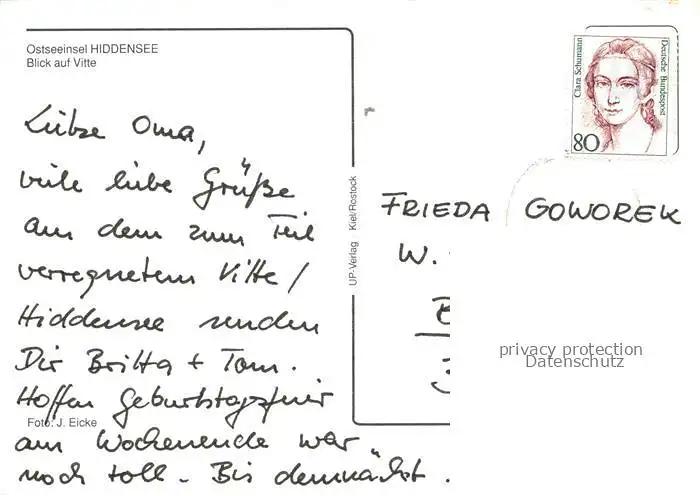 Ostseeinsel HIDDENSEE
Blick auf Vitte
Liebe Oma,
viele liebe Grüße
aus dem zum Teil
verregnetem Vitte/
Hiddensee senden
Dir Britta + Tom.
Hoffen Geburtstagsfeier
am Wochenende war
noch toll. Bis demnächst.
Foto: J. Eicke
UP-Verlag Kiel/Rostock
Clara Schumann
Deutsche Bundespost
80
FRIEDA GOWOREK
W.
privacy protection
Datenschutz